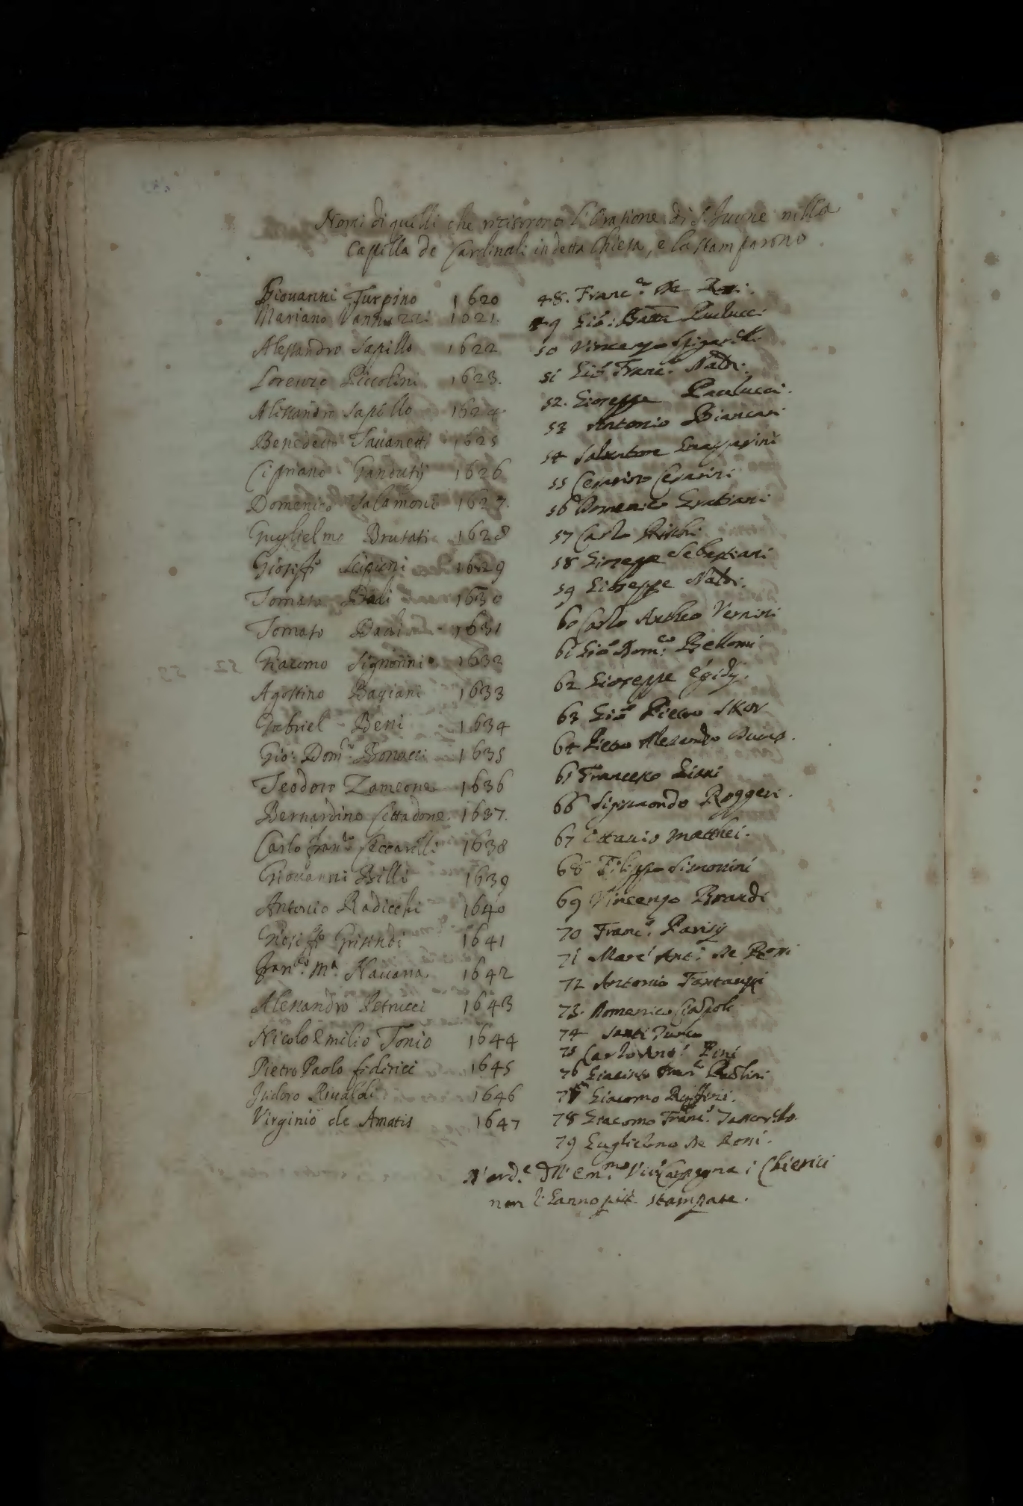 Nomi di quelli che recitorono l'Orasione di S. Iuone nella
Capella de Cardinali in detta Chiesa, e la stamparono.
Giouanni Turpino 1620
Mariano Vannuzzi 1621
Alessandro Sapillo 1622
Lorenzo Piccolini 1623.
Alessandro Sapillo 1624.
Benedetto 1625
Cipriano 1626
Domenico Salamoni 1627.
Guglielmo Brutati 1628
Gioseffo Scipioni 1629
Tomato Bali 1630
Tomato Bali 1631
Giacomo Signorini 1632
Agostino Bagiani 1633
Gabriel Beni 1634
Gio: Dom.co Bonacci 1635
Teodoro Zameone 1636
Bernardino Cittadone 1637.
Carlo Fran.co Ceccarelli 1638
Giouanni Billi 1639
Antonio Radicchi 1640
Gioseffo Grisendi 1641
Fran.co M.a Nauona 1642
Alessandro Petrucci 1643
Nicolo Emilio Tonio 1644
Pietro Paolo federici 1645
Isidoro Riualdi 1646
Virginio de Amatis 1647
48. Franc.o de
49 Gio: Batt Paulucci
50 Vincenzo
51 Gio: Franc.o Nadi.
52. Gioseppe Paulucci.
53 Antonio Biancari
54 Saluatore Gasparini
55 Cesarino Cesarini
56 Domenico Gratiani
57 Carlo
58 Gioseppe Sebastiani
59 Gioseppe Nadi.
60 Carlo Andreo Vernini
61 Gio: Dom.co Bellomi
62 Gioseppe Egidij.
63 Gio: Pietro Skor
64 Pietro Alesandro
65 Francesco Gioni
66 Sigismondo Roggeri.
67 Ottauio Matthei.
68 Filippo Simonini
69 Vincenzo Brandi
70 Franc.o Parisij
71 Marc' Ant.o de Rossi
72 Antonio
73. Domenico
74 Santi Turco
75 Carlo Ant.o Pini
76 Giacinto Fran.co Paolini
77 Giacomo Ruffini.
78 Giacomo Franc.o
79 Guglielmo de Roni.
D'ord.e dell' Em.mo Vic.o Caspegna i Chierici
non l'hanno più stampate.